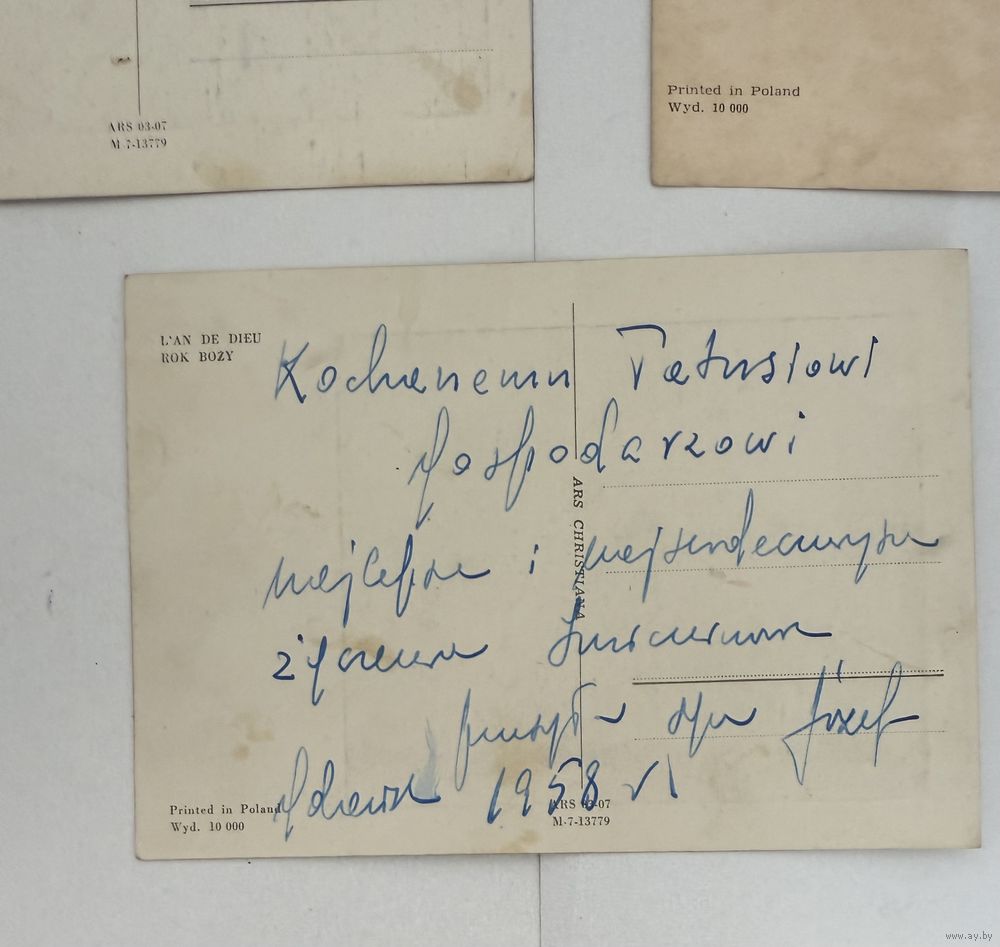 ARS 03-07
M-7-13779
Printed in Poland
Wyd. 10 000
L'AN DE DIEU
ROK BOŻY
Kochanemu Tatusiowi
Gospodarzowi
najlepsze i najserdeczniejsze
życzenia Imieninowe
syn Józef
1958 r
ARS CHRISTIANA
Printed in Poland
Wyd. 10 000
ARS 03-07
M-7-13779
www.ay.by